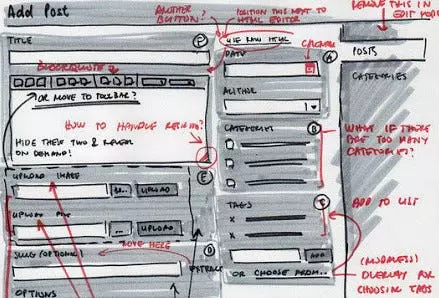 Add Post
ANOTHER
BUTTON?
POSITION THIS NEXT TO
HTML EDITOR
REMOVE THIS IN
EDIT
TITLE
P
USE RAW HTML
CALENDAR
DATE
A
POSTS
BLOCKQUOTE
CATEGORIES
OR MOVE TO TOOLBAR?
AUTHOR
HOW TO HANDLE RESIZING?
HIDE THESE TWO & REVEAL
ON DEMAND!
CATEGORIES
B
WHAT IF THERE
ARE TOO MANY
CATEGORIES?
UPLOAD IMAGE
E
...
UPLOAD
UPLOAD
...
UPLOAD
TAGS
X
X
ADD TO LIST
MOVE HERE
SLUG (OPTIONAL)
D
EXTRACT
ADD
OR CHOOSE FROM...
(MODELESS)
OVERLAY FOR
CHOOSING TAGS
OPTIONS